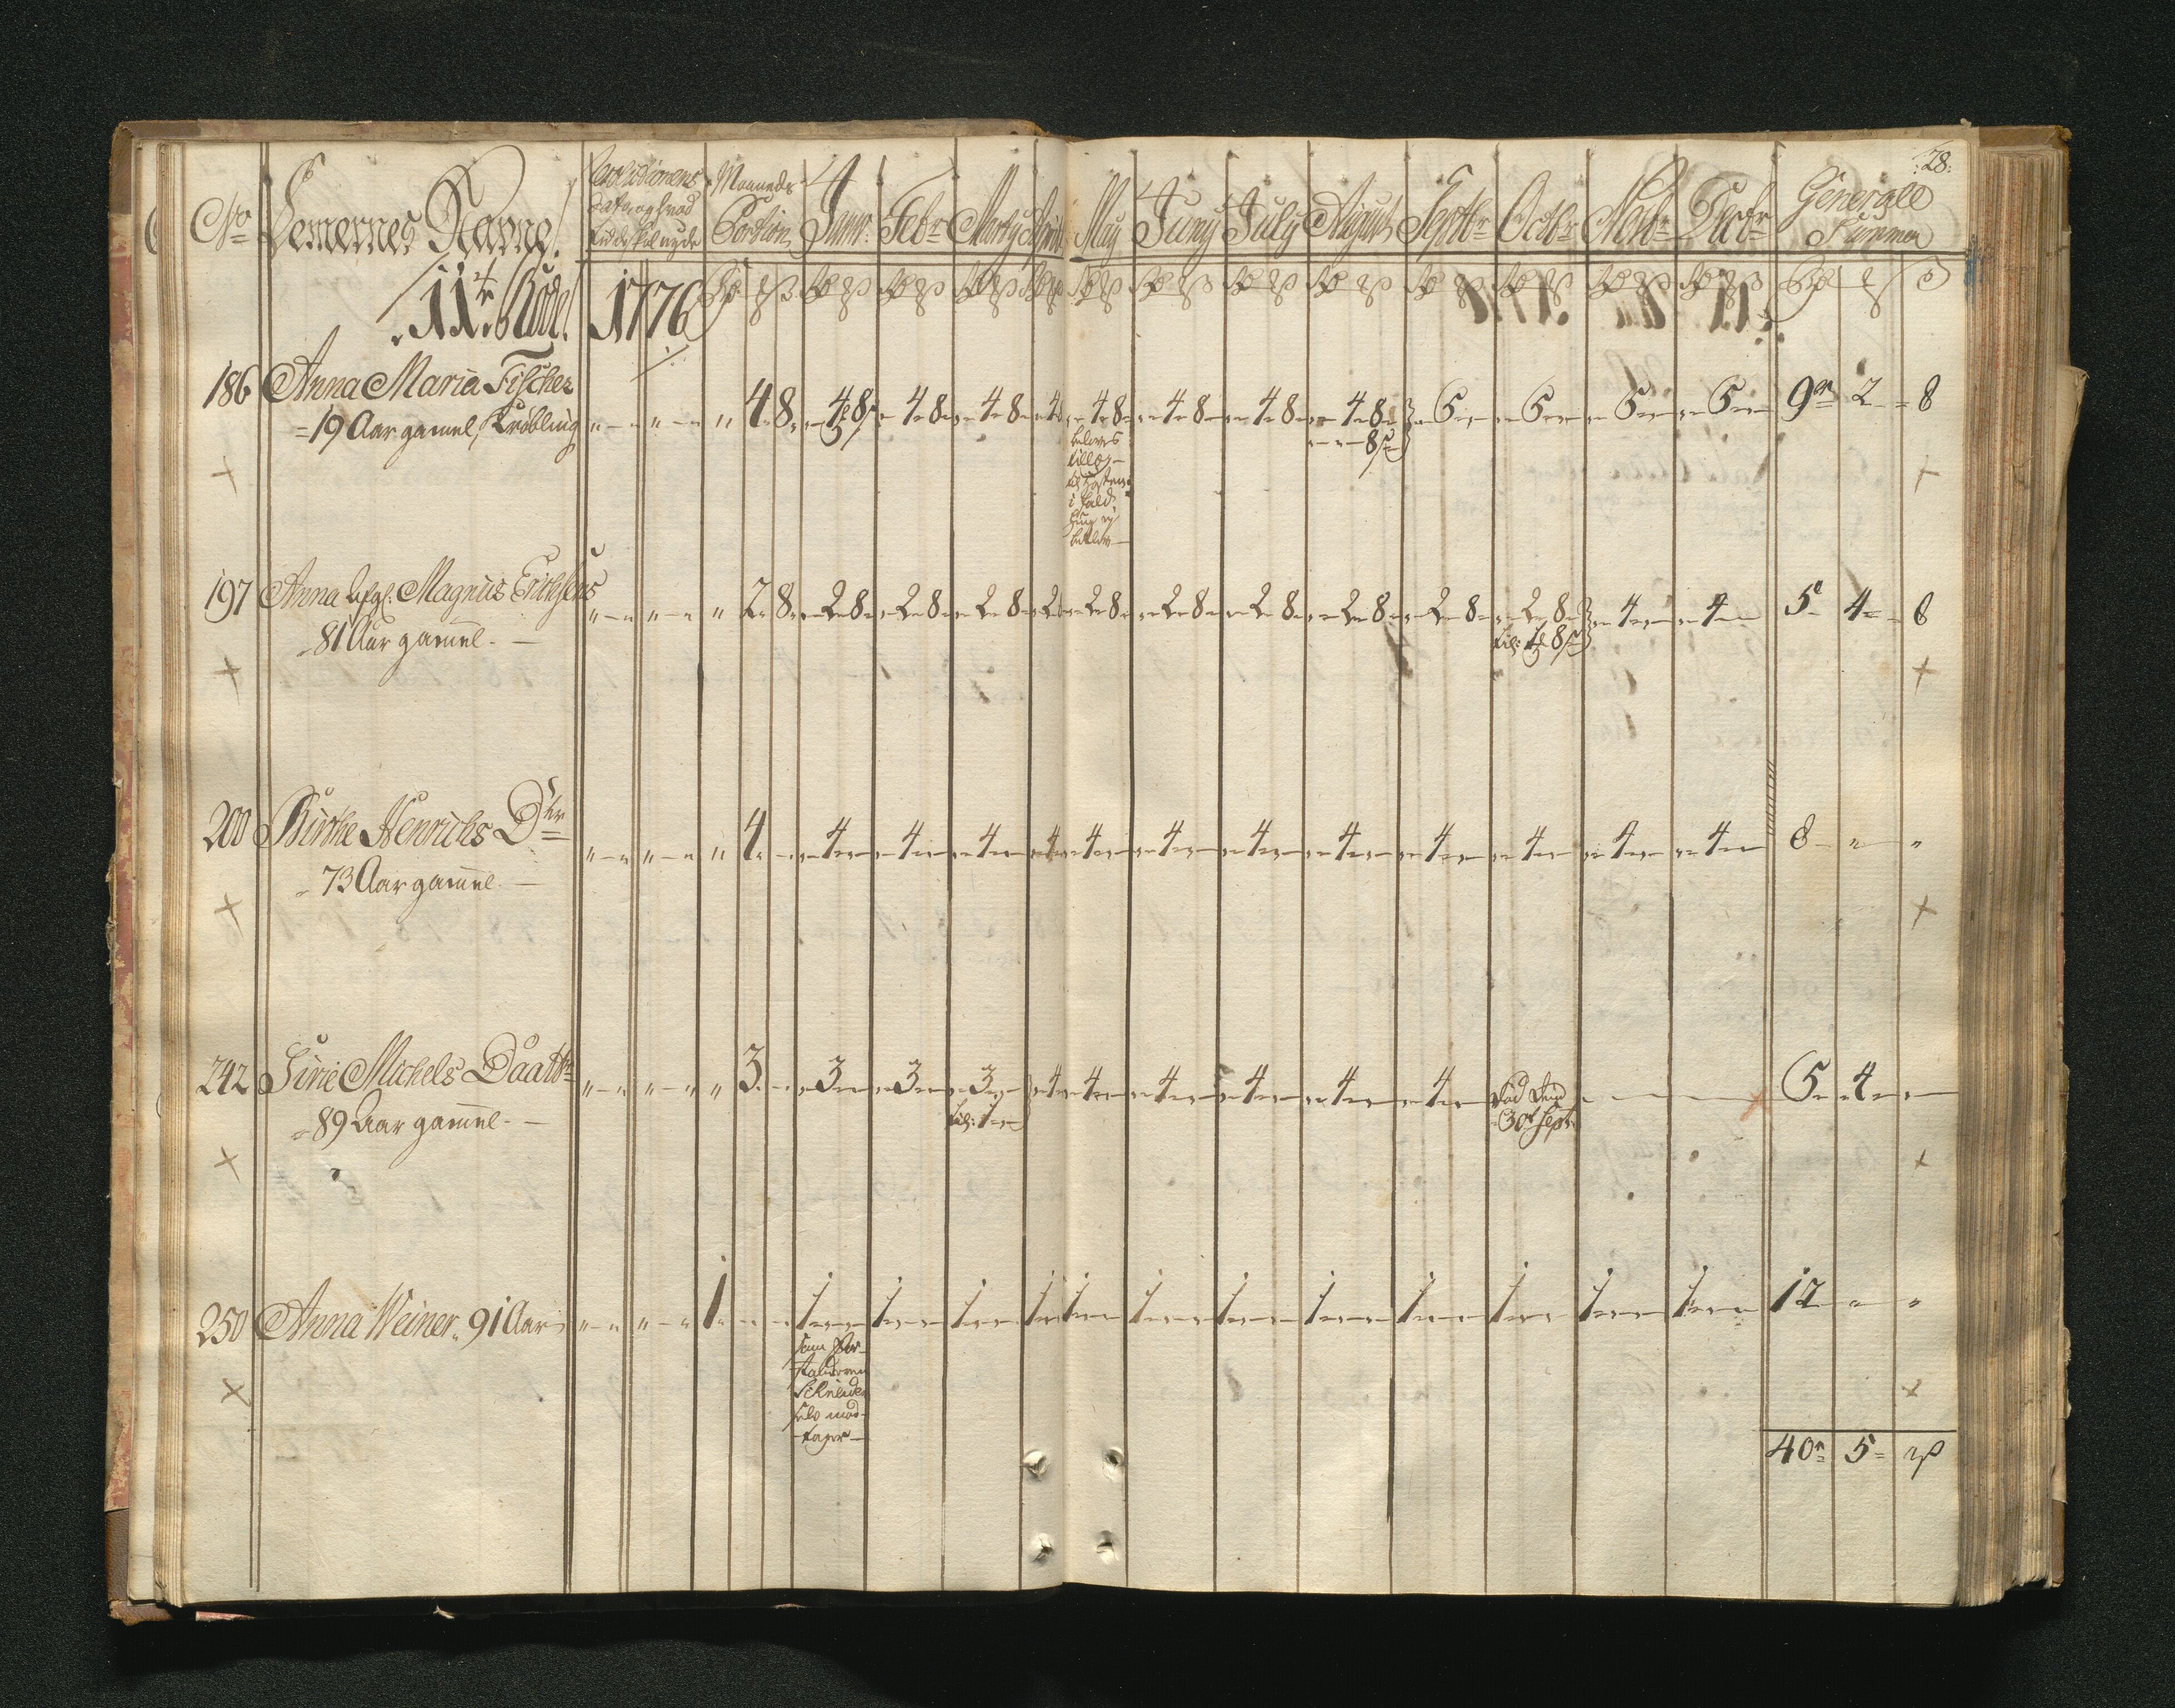 :28:
No Lemernes Navne Resolutionens Maaneds Portion Janr: Febr Marty April May Juny July August Septbr Octbr Novbr Decbr Generale Summa
11te Rode 1776
186 Anna Maria Fischer
4 8 4 8 4 8 4 8 4 4 8 4 8 4 8 4 8 5 5 5 5 9 2 8
19 Aar gamel, Krøbling
8
197 Anna Magnus Erichsens
2 8 2 8 2 8 2 8 2 2 8 2 8 2 8 2 8 2 8 2 8 4 4 5 4 8
81 Aar gammel
200 Birthe Henrichs Dtr
4 4 4 4 4 4 4 4 4 4 4 4 4 8 " "
73 Aar gammel
242 Sirie Michels Daattr
3 3 3 3 4 4 4 4 4 4 død 5 4
89 Aar gammel
til: 1
30t Sept:
250 Anna Weiner 91 Aar
1 1 1 1 1 1 1 1 1 1 1 1 1 12 " "
som For
selv mod
tager
40 5 " ß